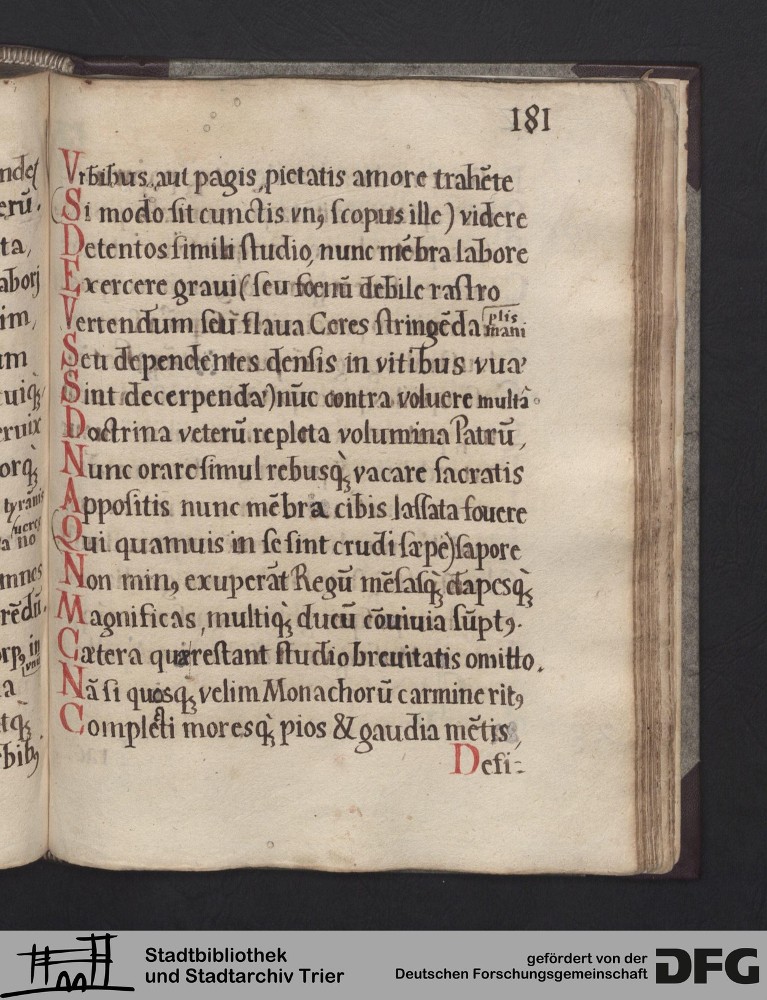 181
Vrbibus, aut pagis, pietatis amore trahēte
(Si modo ſit cunctis vnꝰ ſcopus ille) videre
Detentos ſimili ſtudio, nunc mēbra labore
Exercere graui (ſeu foenū debile raſtro
Vertendum ſeu flaua Ceres ſtringēda plis mani
Seu dependentes denſis in vitibus vua
Sint decerpenda) nūc contra voluere multā
Doctrina veterū repleta volumina Patrū,
Nunc orare ſimul rebusqꝫ vacare ſacratis
Appoſitis nunc mēbra cibis laſſata fouere
(Qui quamuis in ſe ſint crudi ſæpe) ſapore
Non minꝰ exuperāt Regū mēſaſqꝫ dapesqꝫ
Magnificas, multiqꝫ ducū cōuiuia ſūptꝰ.
Cætera quæ reſtant ſtudio breuitatis omitto.
Nā ſi quosqꝫ velim Monachorū carmine ritꝰ
Complecti moresqꝫ pios & gaudia mētis,
Defi-
nde
erū.
ta,
im,
um
cuiqꝫ
eruix
orqꝫ
tyrānis
no
mnes
rēdū.
orpꝰ in
a
tqꝫ
rbibꝰ
Stadtbibliothek
und Stadtarchiv Trier
gefördert von der
Deutschen Forschungsgemeinschaft
DFG